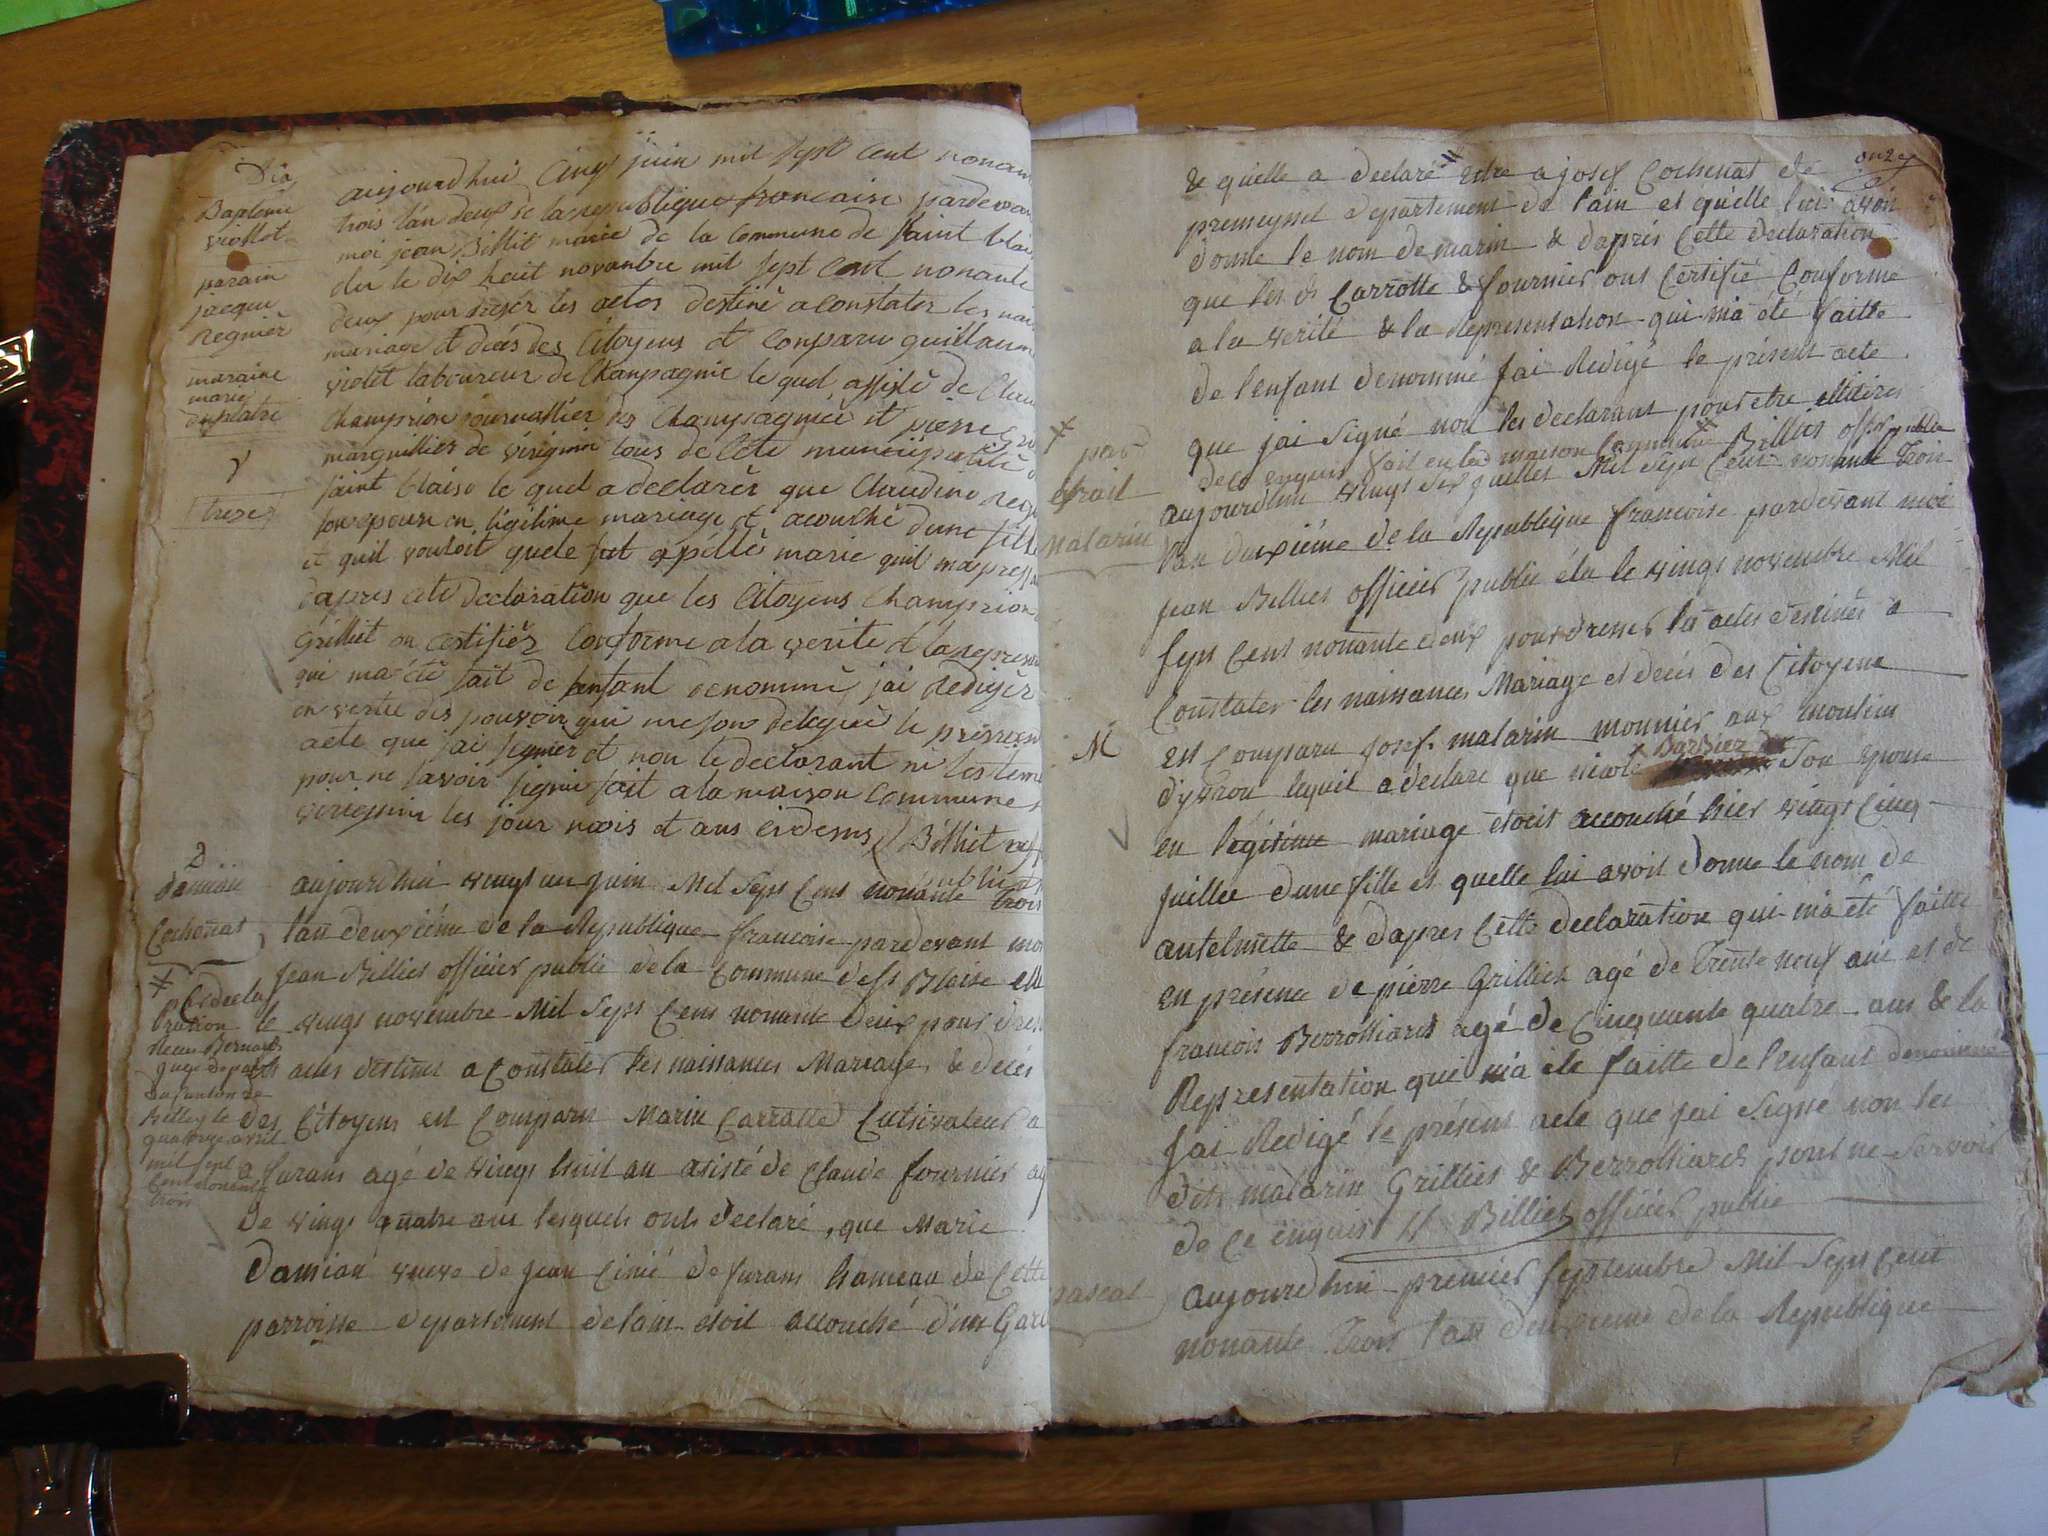 Dia
Baptême
violet
parain
jacque
Regnier
maraine
marie
duplatre
V
treze
aujourdhui Cinq juin mil sept cent nonan
trois l'an deux de la republique francaise pardevan
moi jean Billit maire de la Commune de Saint blai
elu le dix huit novanbre mil sept cent nonante
deux pour dreser les actes destiné a constater les nai
mariage et décés des Citoyens et conparu guillaume
violet laboureur de Chanpagnie le quel assisté de Clau
Champrion journallier des Chanpagnee et pierre Gri
marguillier de virignin tous de cete municipalité
saint blaise le quel a declarer que Claudine Reg
son epouse en légitime mariage et acouché dune fille
et quil vouloit quele fut apéllé marie quil ma pres
dapres cete declaration que les Citoyens Champrion
Grilliet on certifiéz Conforme a la verité et la represan
qui ma été fait de lenfant denommé jai redigér
en vertu des pouvoir qui me son delegué le present
acte que jai signier et non le declarant ni les temo
pour ne savoir signié fait a la maison commune
virigninr les jour mois et ans ci desus Billiet off
publicq
D
damian
Cochenat
aujourd'hui vingt un juin Mil Sept Cent nonante trois
l'an deuxiéme de la Republique francoise pardevant moi
Jean Billiet officier public de la Commune de St Blaise elu
le vingt novembre Mil Sept Cent nonante deux pour dres
les actes destinés a Constater les naissances Mariages & décés
des Citoyens est Comparu Marin Carrotte Cultivateur a
furans agé de vingt huit an assisté de Claude fournier ag
de vingt quatre ans lesquels onts declaré, que Marie
Damian veuve de Jean Cinié de furans hameau de Cette
parroisse departement de lain etoit accouché d'un Garc
# par declaration
Recu Bernard
juge de paix
du canton de
Belley le
quatorze avril
mil sept
cent nonante
trois
onze
& quelle a declaré # etre a josef Cochenat de
premeyset departement de l'ain et quelle lui avoit
donne le nom de marin & daprés Cette declaration
que les ds Carrotte & fournier ont Certifié Conforme
a la verité & la Representation qui ma été faitte
de l'enfant denommé jai Redigé le présent acte
que jai signé non les declarant pour etre illitirés
de ce enquis fait en la maison Commune Billiet offr public
# par
extrait
Malarin
aujourdhui vingt six juillet Mil Sept Cent nonante trois
l'an deuxiéme de la Republique francoise pardevant moi
Jean Billiet officier public élu le vingt novembre Mil
Sept Cent nonante deux pour dresser les actes destinés a
Constater les naissances Mariage et décés des Citoyens
M
est Comparu Josef malarin mounier aux moulin
dyvron lequel a declare que nicole Barbier son epouse
en légitime mariage etoit accouché hier vingt cinq
juillet dune fille et quelle lui avoit donne le nom de
antelmette & dapres Cette declaration qui ma été faitte
en présence de pierre Grilliet agé de trente neuf ans et de
francois Berrolliard agé de Cinquante quatre ans & la
Representation qui ma été faitte de l'enfant denommé
Jai Redigé le présent acte que jai Signé non les
dits malarin Grilliet & Berrolliard pour ne Scavoir
de ce enquis Billiet officier public
pascal
aujourd'hui premier septembre Mil Sept Cent
nonante trois l'an deuxieme de la Republique